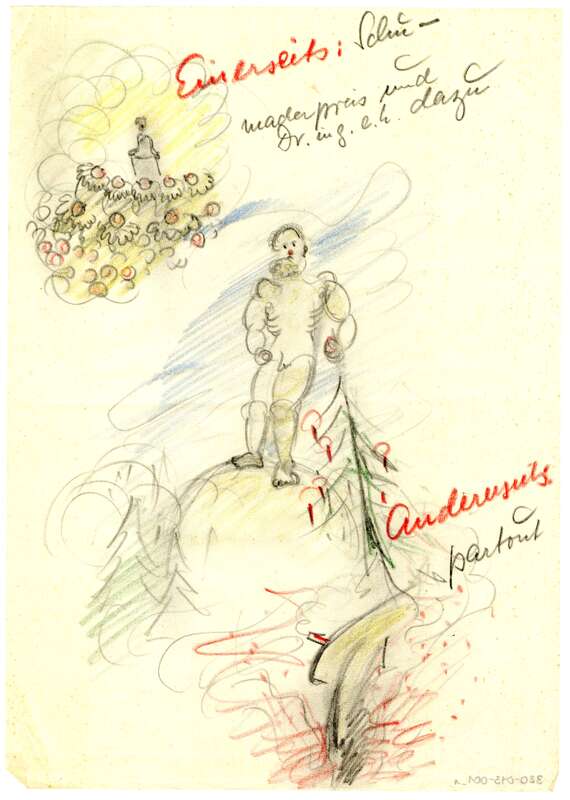 Einerseits: Schu-
macherpreis und
Dr. ing. e.h. dazu
Andererseits:
partout
320-015-001_r